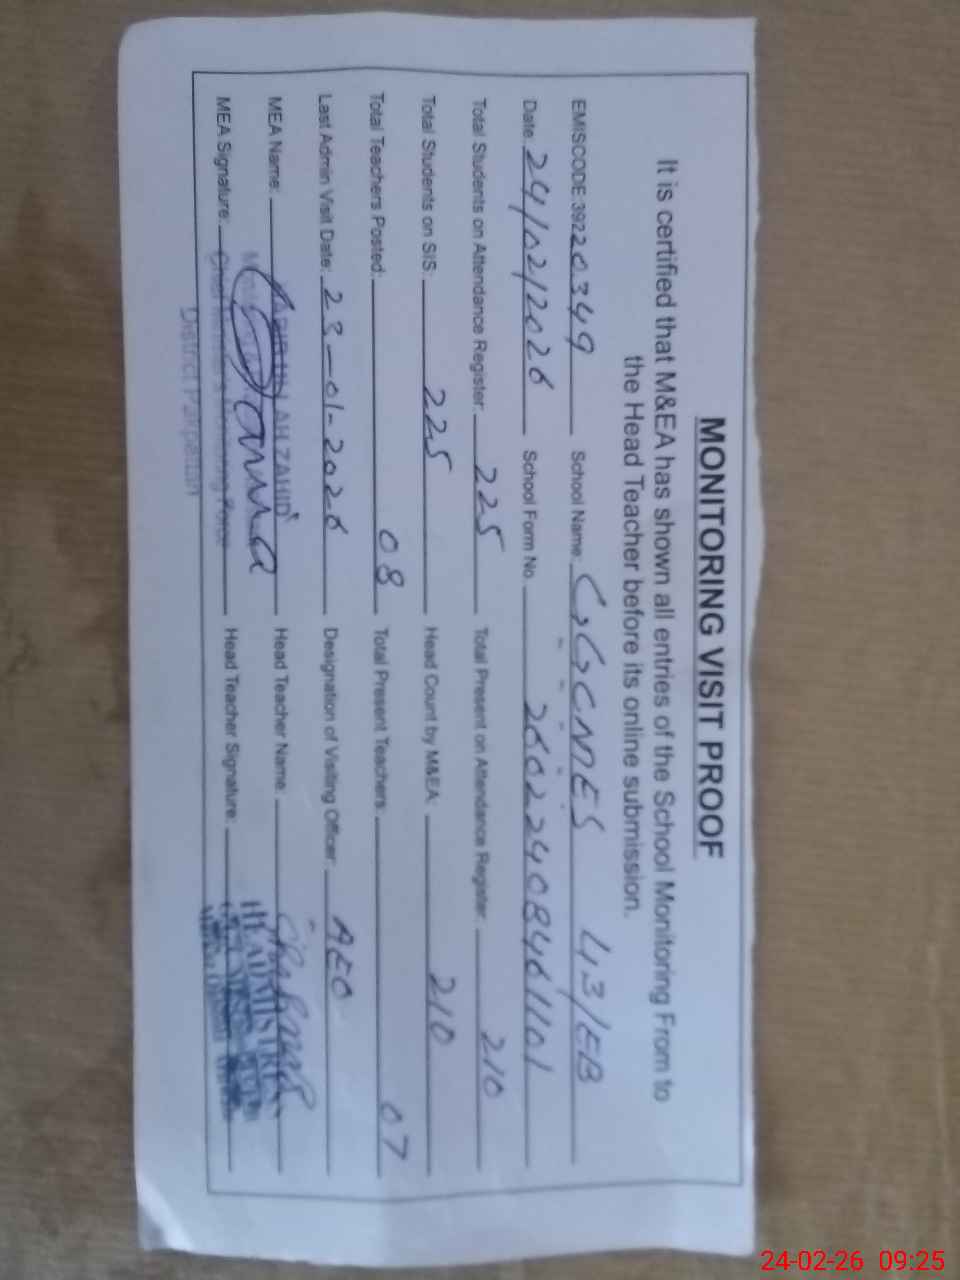 MONITORING VISIT PROOF
It is certified that M&EA has shown all entries of the School Monitoring From to
the Head Teacher before its online submission.
EMISCODE:39220349 School Name: GGCMES 43/EB
Date 24/02/2026 School Form No. 26022408461101
Total Students on Attendance Register: 225 Total Present on Attendance Register: 210
Total Students on SIS: 225 Head Count by M&EA: 210
Total Teachers Posted: 08 Total Present Teachers: 07
Last Admin Visit Date: 23-01-2026 Designation of Visiting Officer: AEO
MEA Name: ZAHID Head Teacher Name:
MEA Signature: Head Teacher Signature:
Chief Minister's Monitoring Force
District Pakpattan
HEADMISTRESS
24-02-26 09:25